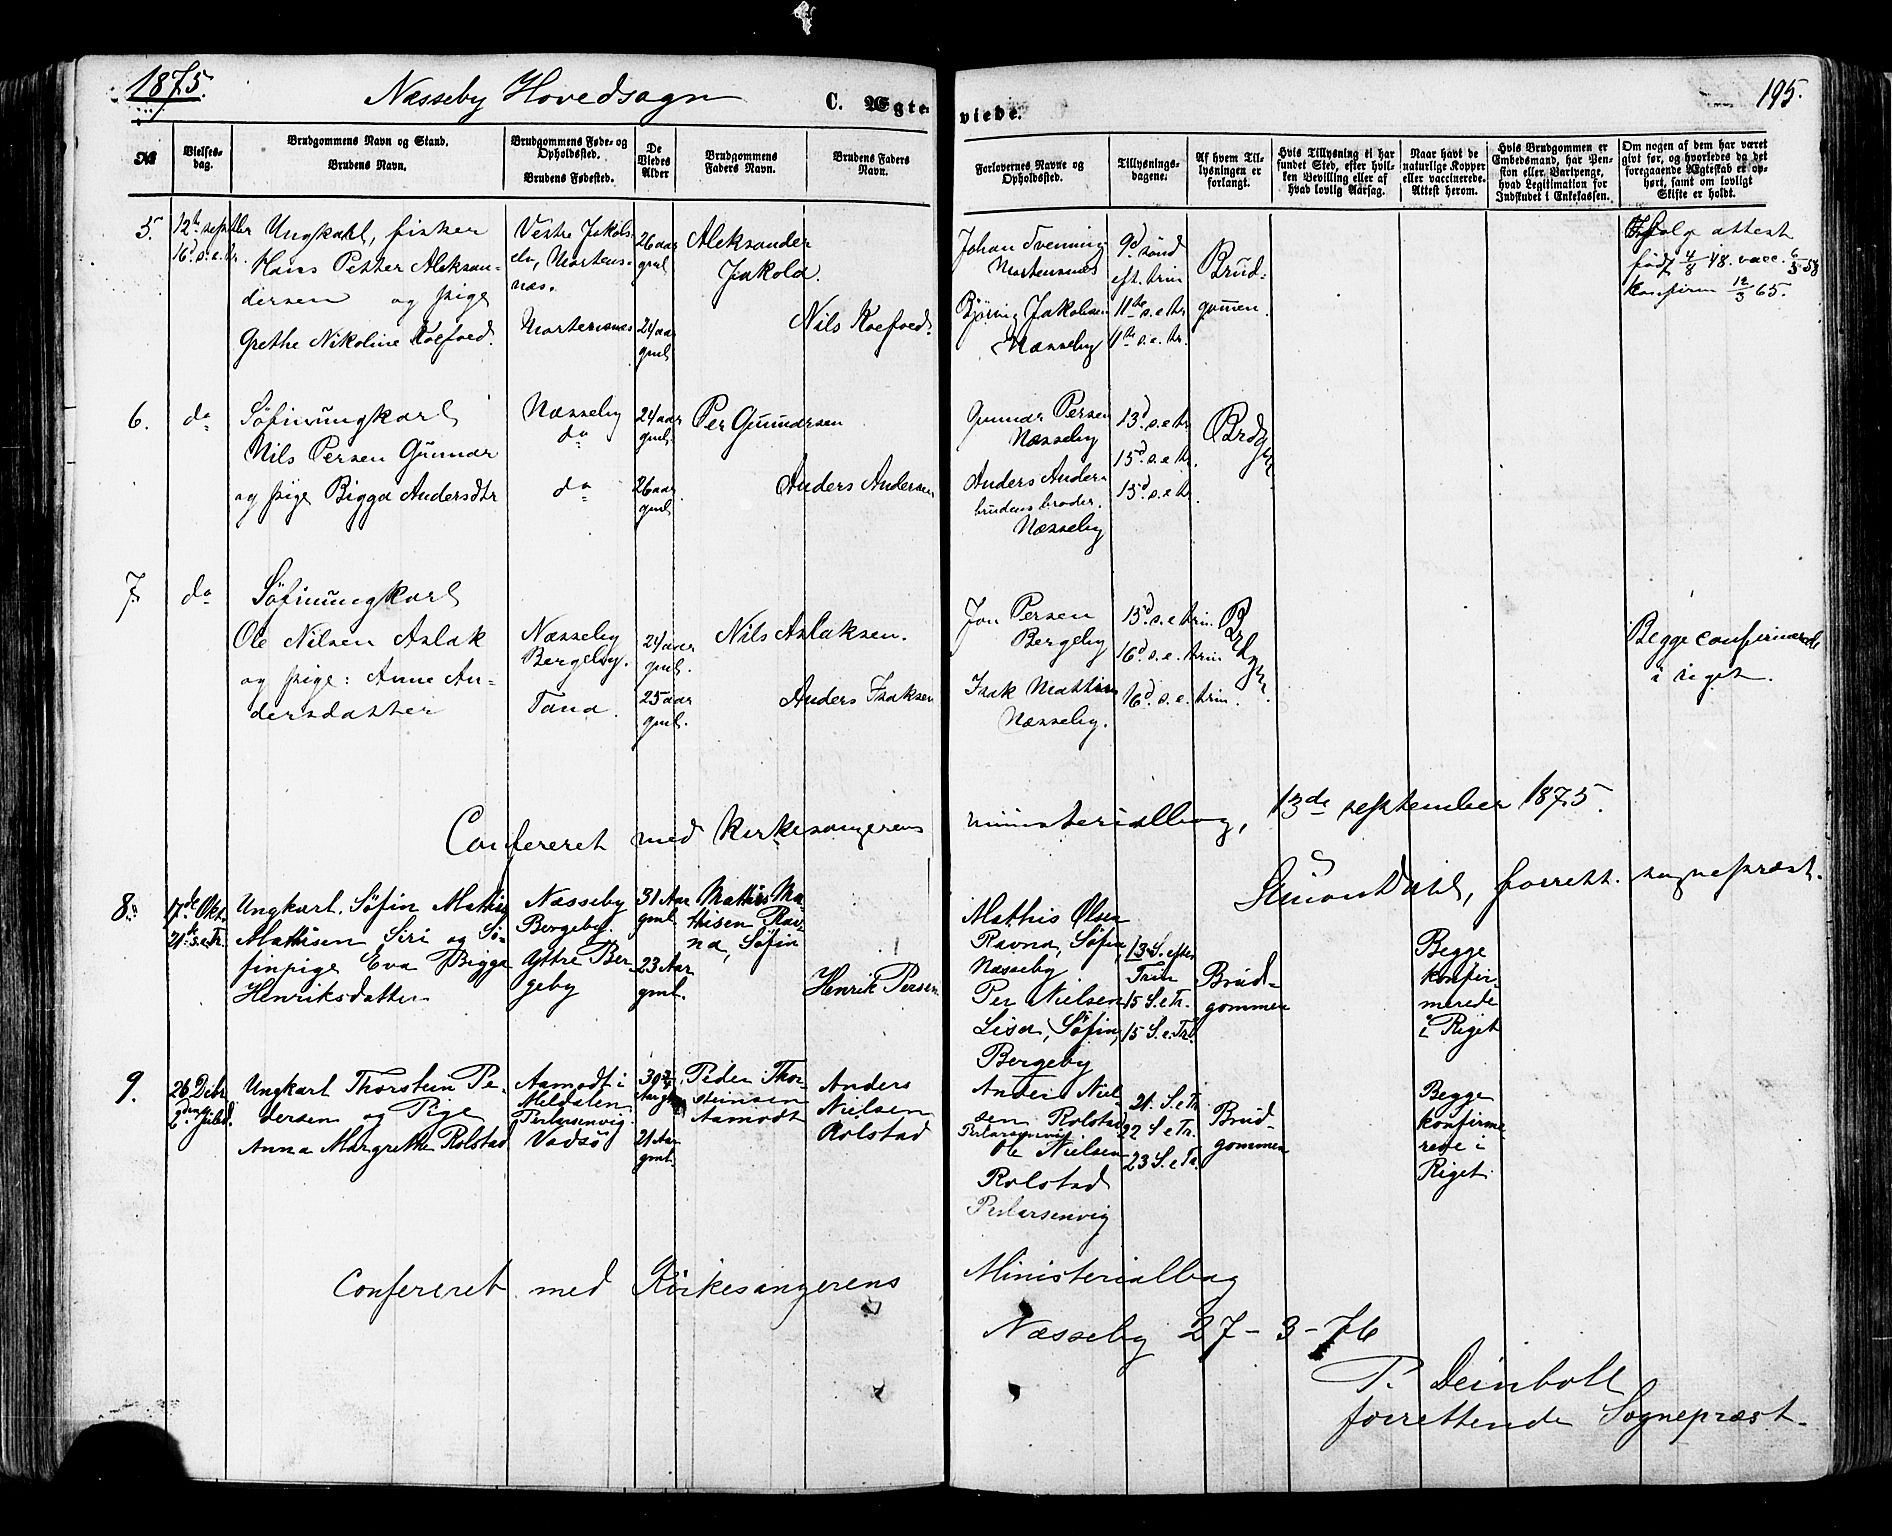 1875.
Næsseby Hovedsogn
C. Ægte-
viede.
195.
No
Vielses-
dag.
Brudgommens Navn og Stand.
Brudens Navn.
Brudgommens Føde- og
Opholdssted.
Brudens Fødested.
De
Viedes
Alder
Brudgommens
Faders Navn.
Brudens Faders
Navn.
Forlovernes Navne og
Opholdssted.
Tillysnings-
dagene.
Af hvem Til-
lysningen er
forlangt.
Hvis Tillysning ei har
fundet Sted, efter hvil-
ken Bevilling eller af
hvad lovlig Aarsag.
Naar havt de
naturlige Kopper
eller vaccinerede.
Attest herom.
Hvis Brudgommen er
Embedsmand, har Pen-
sion eller Vartpenge,
hvad Legitimation for
Indskudet i Enkekassen.
Om nogen af dem har været
givt før, og hvorledes da det
foregaaende Ægteskab er op-
hørt, samt om lovligt
Skifte er holdt.
5.
12te septbr
16d. s. e. tr.
Ungkarl, fisker
Hans Petter Aleksan-
dersen og pige
Grethe Nikoline Koefoed.
Vestre Jakobs-
elv, Mortens-
næs.
Mortensnes
26 aar
gml
24 aar
gml
Aleksander
Jakola.
Nils Koefoed.
Johan Tvenning
Mortensnes
Bjørnig Jakobsen
Næsseby
9d sønd
eft. trin
11te s. e. tr.
11te s. e. tr.
Brud-
gommen.
Ifølge attest
født 4/8 48. vacc. 6/5 58
konfirm 12/3 65.
6.
do
Søfinungkarl
Nils Persen Gunnar
og pige Bigga Andersdtr
Næsseby
do
do
24 aar
gml.
26 aar
gml
Per Gunnarsen
Anders Andersen
Gunnar Persen
Næsseby
Anders Anders.
brudens broder.
Næsseby
13d. s. e. tr.
15d. s. e. tr.
15d. s. e. tr.
Brdgm
7.
do
Søfinungkarl
Ole Nilsen Aslak
og pige: Anne An-
dersdatter
Næsseby
Bergeby.
Tana.
24 aar
gml.
25 aar
gml.
Nils Aslaksen.
Anders Isaksen
Jon Persen
Bergeby
Isak Mathisen
Næsseby.
15d. s. e. trin.
16d. s. e. trin
16d. s. e. trin.
Brdgm.
Begge confirmerede
i riget.
Confereret med kirkesangerens ministerialbog, 13de september 1875.
Simon Dahl, forrett. sognepræst.
8.
17de Okt.
21de S.e.Tr.
Ungkarl, Søfin Mathis
Mathisen Siri og Sø-
finpige Eva Bigga
Henriksdatter
Næsseby
Bergeby.
Yttre Ber-
geby
31 Aar
gml.
23 Aar
gml.
Mathis Ma-
thisen Rav-
na, Søfin
Henrik Persen
Mathis Olsen
Ravna, Søfin,
Næsseby
Per Nielsen
Lisa, Søfin,
Bergeby
13 S. efter
Trin
15 S. e Tr.
15 S. e. Tr.
Brud-
gommen
Begge
konfir-
merede
i Riget
9.
26 Decbr
2den Juled.
Ungkarl Thorstein Pe-
dersen og Pige
Anna Margrethe Rolstad
Aamodt i
Meldalen
Perlarsenvig.
Vadsø
30
Aar gl.
21 Aar
gml.
Peder Thor-
steinsen
Aamodt
Anders
Nielsen
Rolstad
Anders Niel-
sen Rolstad
Perlarsenvig
Ole Nielsen
Rolstad
Perlarsenvig
21. S. e Tr
22 S. e Tr.
23 S. e Tr.
Brud-
gommen
Begge
konfirme-
rede i
Riget.
Confereret med Kirkesangerens Ministerialbog
Næsseby 27-3-76
P. Deinboll
forrettende Sognepræst.